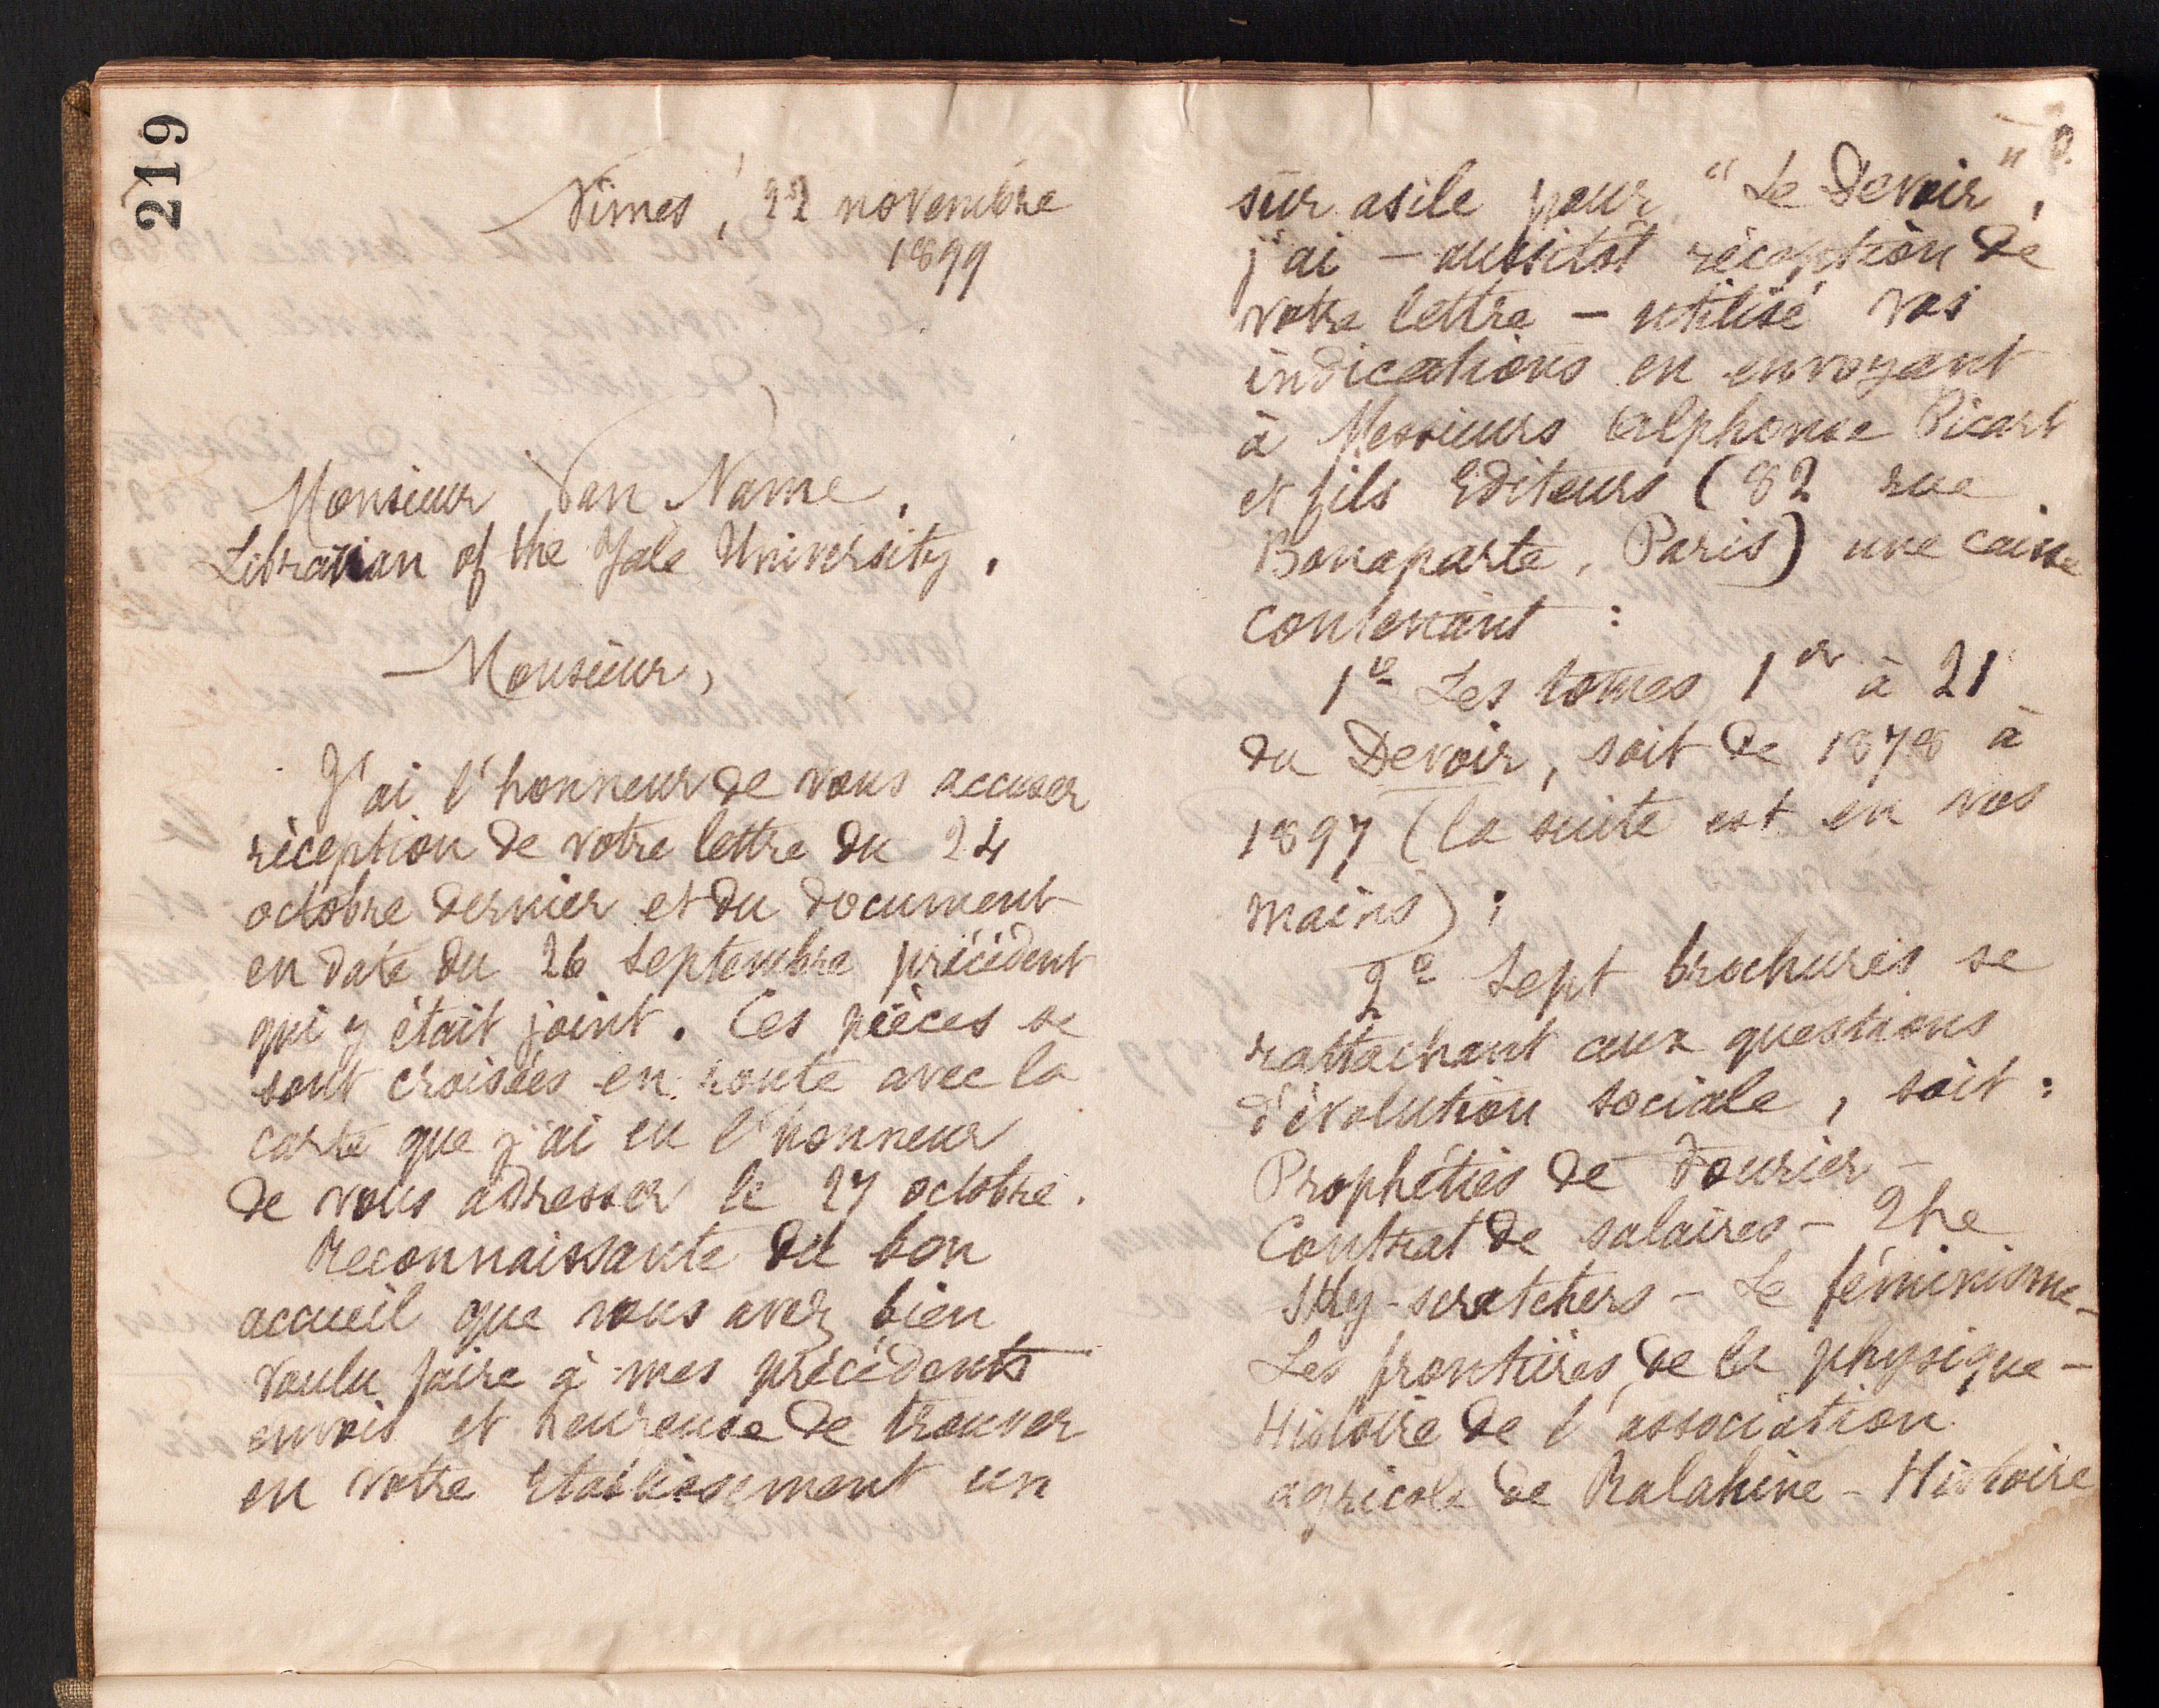 219
Nîmes, 22 novembre
1899
Monsieur Van Name,
Librarian of the Yale University.
Monsieur,
J'ai l'honneur de vous accuser
réception de votre lettre du 24
octobre dernier et du document
en date du 26 septembre précédent
qui y était joint. Ces pièces se
sont croisées en route avec la
carte que j'ai eu l'honneur
de vous adresser le 27 octobre.
Reconnaissante du bon
accueil que vous avez bien
voulu faire à mes précédents
envois et heureuse de trouver
en votre Etablissement un
2
sûr asile pour "Le Devoir",
j'ai – aussitôt réception de
votre lettre – utilisé vos
indications en envoyant
à Messieurs Alphonse Picart
et fils Editeurs (82 rue
Bonaparte, Paris) une caisse
contenant :
1º Les tomes 1er à 21
du Devoir, soit de 1878 à
1897 (la suite est en vos
mains);
2º Sept brochures se
rattachant aux questions
d'évolution sociale, soit :
Prophéties de Fourier –
Contrat de salaires – The
Sky-scratchers – Le féminisme –
Les frontières de la physique –
Histoire de l'association
agricole de Ralahine – Histoire